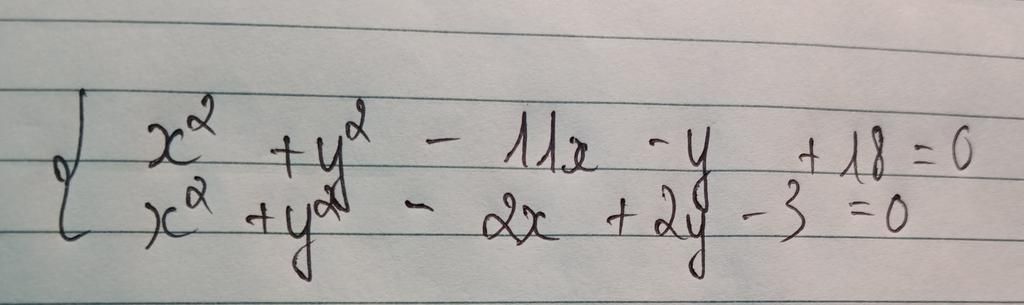 x² + y² - 11x - y + 18 = 0
x² + y² - 2x + 2y - 3 = 0